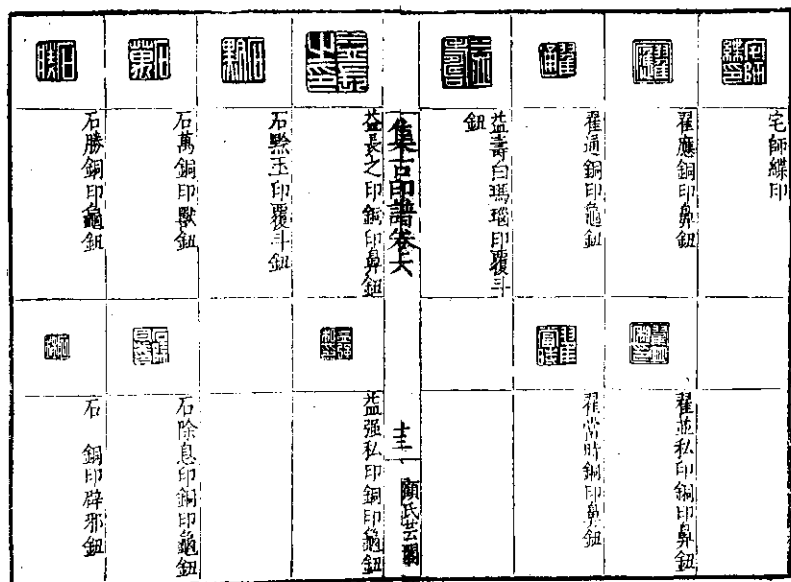 宅師緤印
翟應銅印鼻鈕
翟通銅印龜鈕
益壽白瑪瑙印覆斗
鈕
翟並私印銅印鼻鈕
翟當時銅印鼻鈕
集古印譜卷六
十三
顧氏芸閣
益長之印銅印鼻鈕
石黔玉印覆斗鈕
石萬銅印獸鈕
石勝銅印龜鈕
益强私印銅印龜鈕
石除息印銅印龜鈕
石 銅印辟邪鈕